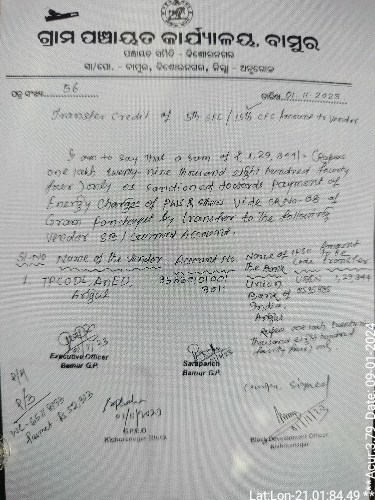 ଗ୍ରାମ ପଞ୍ଚାୟତ କାର୍ଯ୍ୟାଳୟ, ବାମୁର
ପଞ୍ଚାୟତ ସମିତି - କିଶୋରନଗର
ସା/ପୋ. - ବାମୁର, କିଶୋରନଗର, ଜିଲ୍ଲା - ଅନୁଗୋଳ
ପତ୍ର ସଂଖ୍ୟା 56 ତାରିଖ 01.11.2023
Transfer Credit of 5th SFC / 15th CFC Amount to vendor
I am to say that a sum of ₹ 1,29,844/- (Rupees
one lakh twenty-nine thousand eight hundred fourty
four) only is sanctioned towards payment of
Energy Charges of PWS & Vide CR.No-03 of
Gram Panchayat by transfer to the following
vendor SB / Current Account.
Sl.NO Name of the Vendor Account No. Name of the Bank IFSC Code Amount to be transfer
1. TPCODL, AnED, Union UBIN 1,29,844
Angul Bank of
India
Angul
Rupees one lakh twenty nine
thousand eight hundred
fourty four) only
Executive Officer
Bamur G.P.
Sarapanch
Bamur G.P.
01/11/2023
G.P.E.O
Kishorenagar Block
Block Development Officer
Kishorenagar
Lat:Lon-21.01:84.49 ***Acur:3.79 Date:09-01-2024